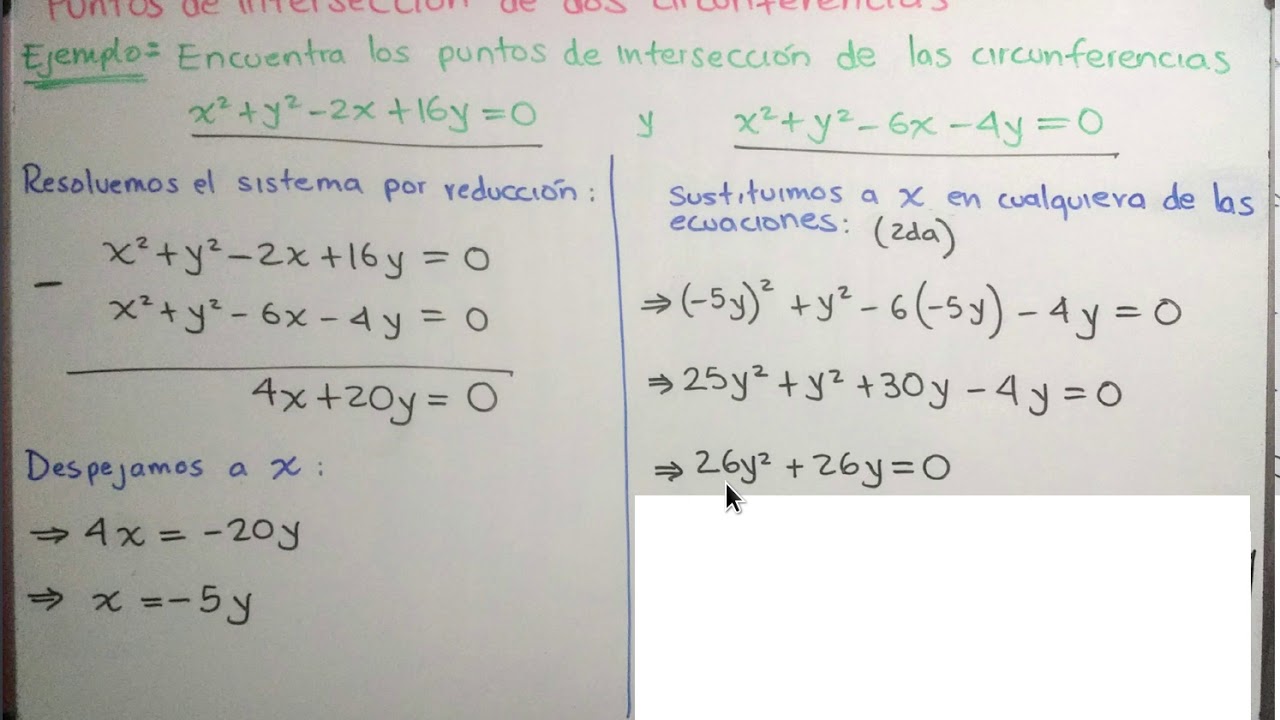 Puntos de intersección de dos circunferencias
Ejemplo= Encuentra los puntos de intersección de las circunferencias
x²+y²-2x+16y=0 y x²+y²-6x-4y=0
Resolvemos el sistema por reducción:
x²+y²-2x+16y=0
-
x²+y²-6x-4y=0
4x+20y=0
Despejamos a x:
⇒ 4x=-20y
⇒ x=-5y
Sustituimos a x en cualquiera de las
ecuaciones: (2da)
⇒(-5y)²+y²-6(-5y)-4y=0
⇒25y²+y²+30y-4y=0
⇒26y²+26y=0